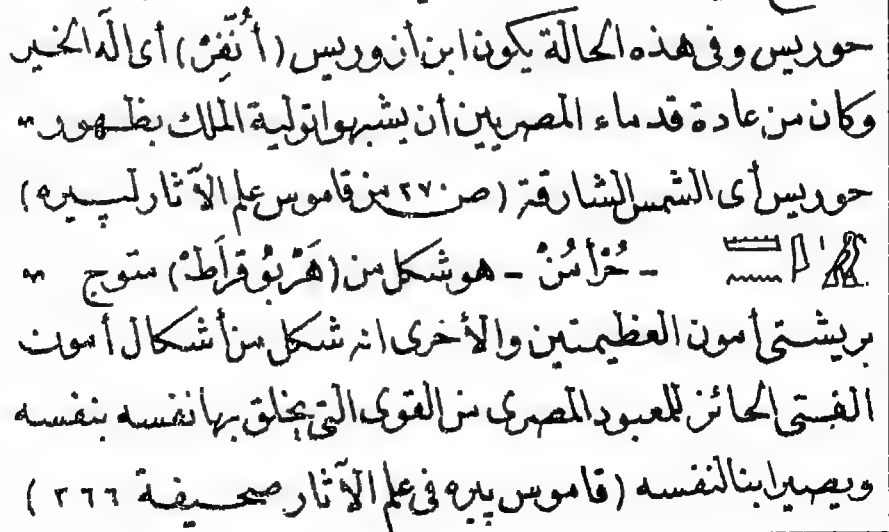 حوريس وفى هذه الحالة يكون ابن أزوريس (أُنّفِرْ) أى الَه الخير
وكان من عادة قدماء المصريين أن يشبهوا تولية الملك بظهور
حوريس أى الشمس الشارقة (ص ٢٧٠ من قاموس علم الآثار لپيره)
- حُرْأَمُنْ - هو شكل من (هَرْبُوقْراَطْ) متوج
بريشتى أمون العظيمتين والأخرى انه شكل من أشكال أمون
الفتى الحائز للمعبود المصرى من القوى التى يخلق بها نفسه بنفسه
ويصير ابنا لنفسه (قاموس پيره فى علم الآثار صحيفة ٢٦٦)